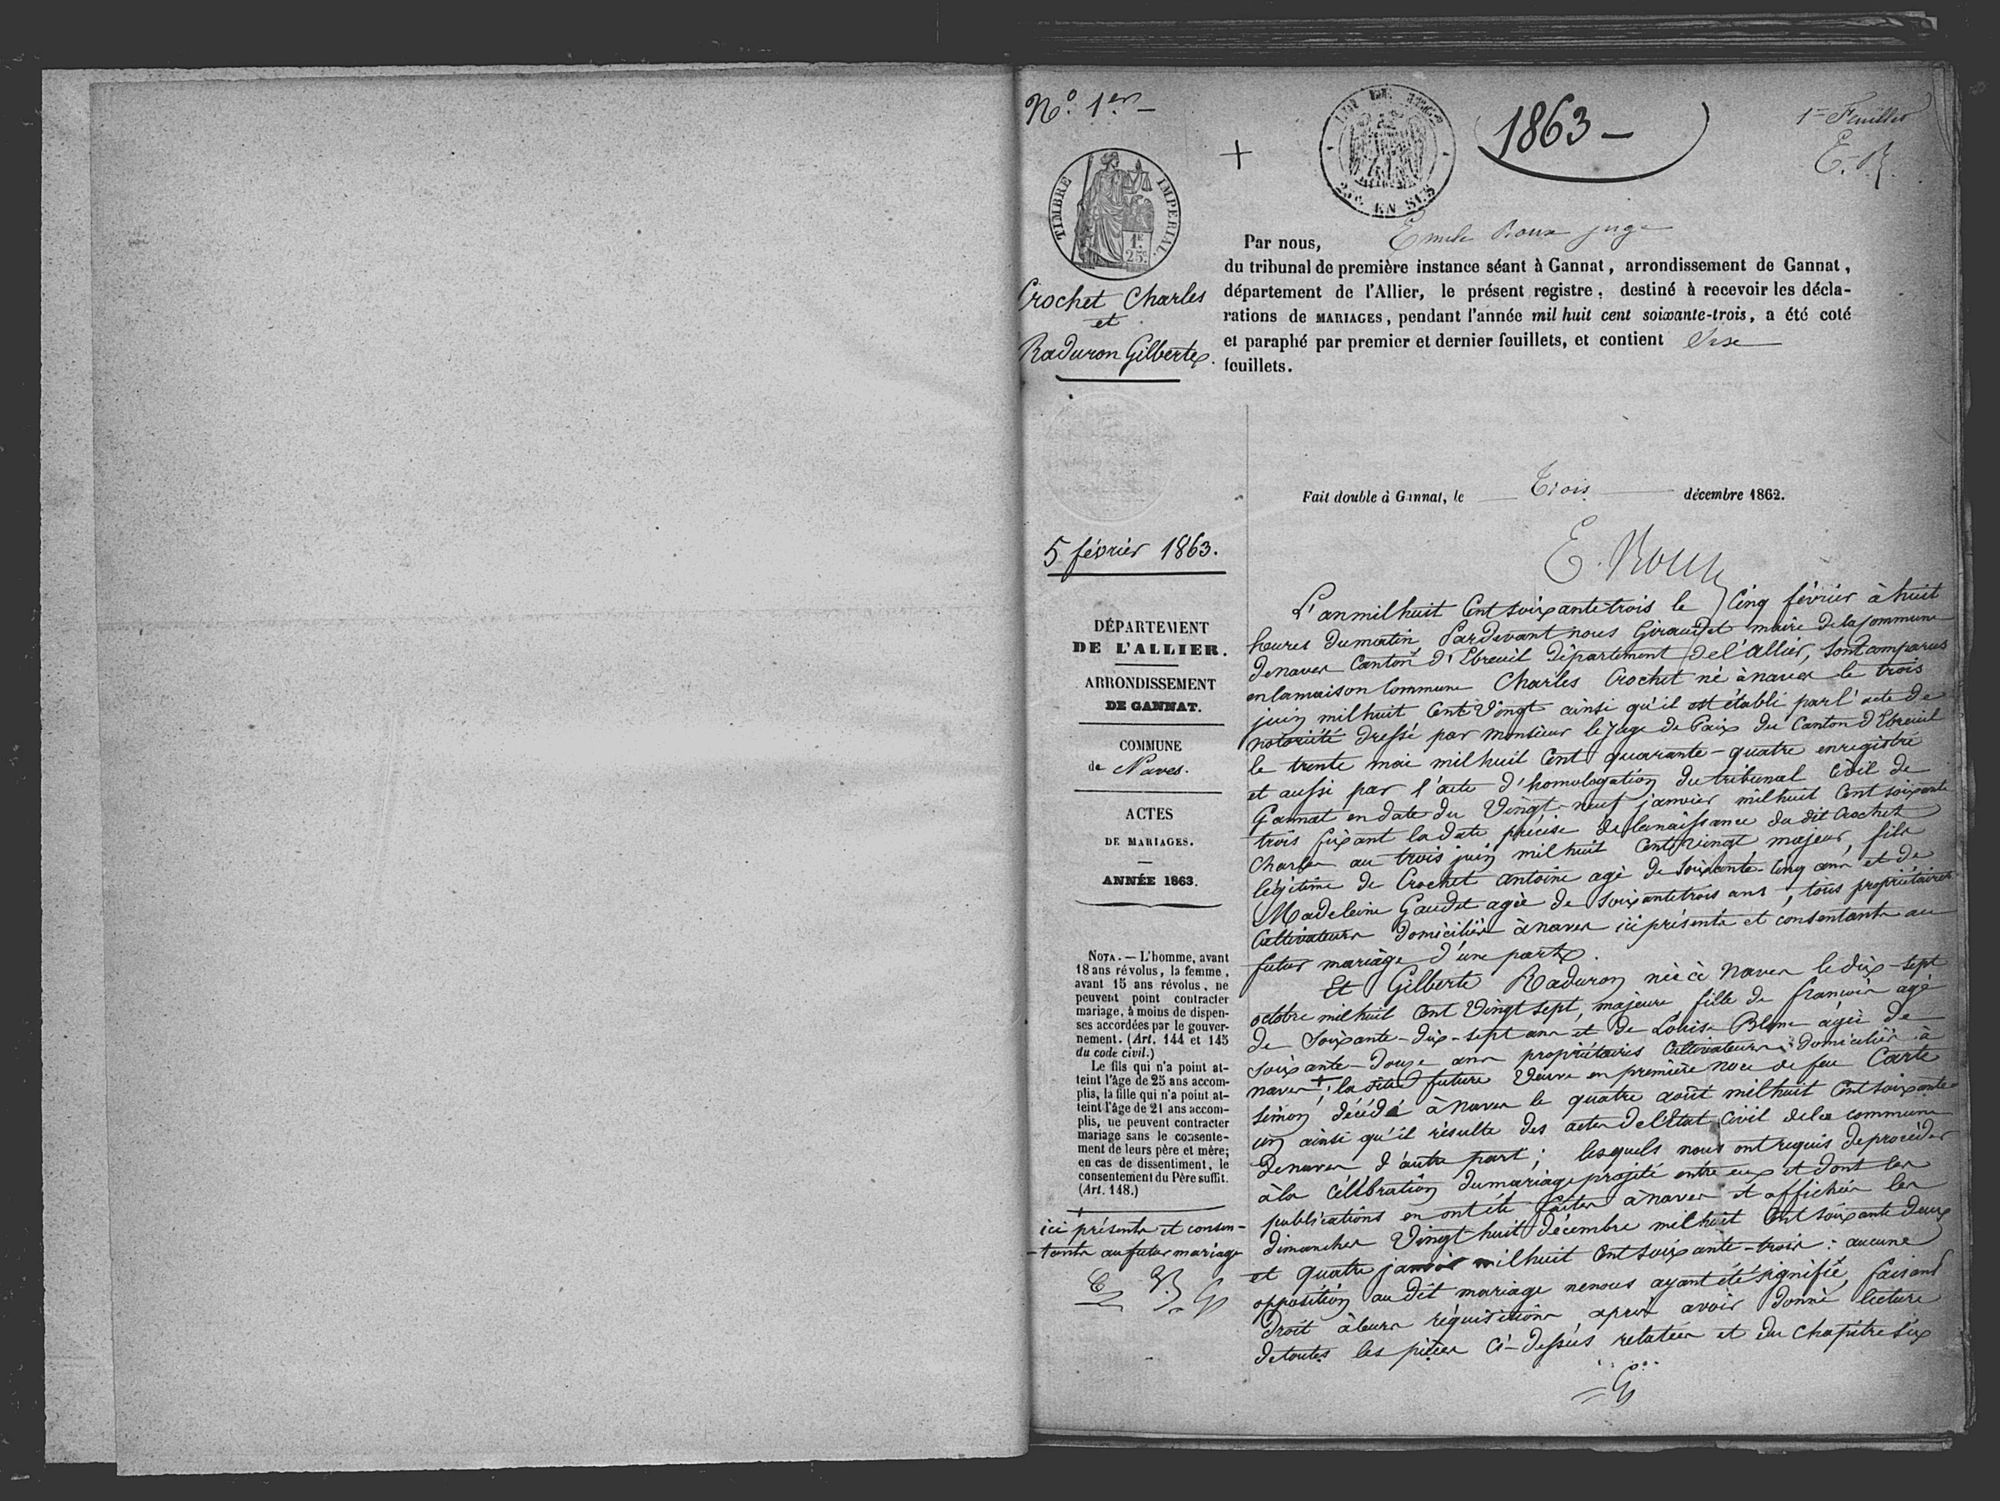 N.o 1er
1863
1er Feuillet
E. R.
TIMBRE IMPERIAL
1F.
25c.
25c. EN SUS
Crochet Charles
et
Raduron Gilberte
Par nous, Emile Roux juge
du tribunal de première instance séant à Gannat, arrondissement de Gannat,
département de l'Allier, le présent registre, destiné à recevoir les décla-
rations de MARIAGES, pendant l'année mil huit cent soixante-trois, a été coté
et paraphé par premier et dernier feuillets, et contient
feuillets.
Fait double à Gannat, le Trois décembre 1862.
E. Roux
5 février 1863.
DÉPARTEMENT
DE L'ALLIER.
ARRONDISSEMENT
DE GANNAT.
COMMUNE
de Naves.
ACTES
DE MARIAGES.
ANNÉE 1863.
NOTA. — L'homme, avant
18 ans révolus, la femme,
avant 15 ans révolus, ne
peuvent point contracter
mariage, à moins de dispen-
ses accordées par le gouver-
nement. (Art. 144 et 145
du code civil.)
Le fils qui n'a point at-
teint l'âge de 25 ans accom-
plis, la fille qui n'a point at-
teint l'âge de 21 ans accom-
plis, ne peuvent contracter
mariage sans le consente-
ment de leurs père et mère;
en cas de dissentiment, le
consentement du Père suffit.
(Art. 148.)
+
ici présents et consen-
-tants au futur mariage
L'an mil huit Cent soixante trois le Cinq février à huit
heures du matin Pardevant nous Giraudet maire de la Commune
de naves Canton d'Ebreuil Département de l'Allier, sont comparus
en la maison Commune Charles Crochet né à naves le trois
juin mil huit Cent Vingt ainsi qu'il est établi par l'acte de
notoriété dressé par monsieur le Juge de Paix du Canton d'Ebreuil
le trente mai mil huit Cent quarante-quatre enregistré
et aussi par l'acte d'homologation du tribunal Civil de
Gannat en date du Vingt-neuf janvier mil huit Cent soixante
trois fixant la date précise de la naissance du dit Crochet
Charles au trois juin mil huit Cent Vingt majeur, fils
légitime de Crochet Antoine agé de soixante-Cinq ans et de
Madeleine Gaudet agée de soixante trois ans, tous propriétaires
Cultivateurs domiciliés à naves ici présents et consentants au
futur mariage d'une part.
Et Gilberte Raduron née à Naves le dix-sept
octobre mil huit Cent Vingt sept, majeure fille de françois agé
de soixante-dix-sept ans et de Louise Blanc agée de
soixante-douze ans propriétaires Cultivateurs domiciliés à
naves +, la dite future Veuve en première noce de feu Carte
simon, décédé à Naves le quatre août mil huit Cent soixante
un ainsi qu'il résulte des actes de l'Etat Civil de la commune
de naves d'autre part; lesquels nous ont requis de procéder
à la Célébration du mariage projeté entre eux et dont les
publications en ont été faites à naves et affichées les
dimanches Vingt huit décembre mil huit Cent soixante deux
et quatre janvier mil huit Cent soixante-trois: aucune
opposition au dit mariage ne nous ayant été signifié, faisant
droit à leurs réquisitions, après avoir donné lecture
de toutes les pièces Ci-dessus relatées et du Chapitre six